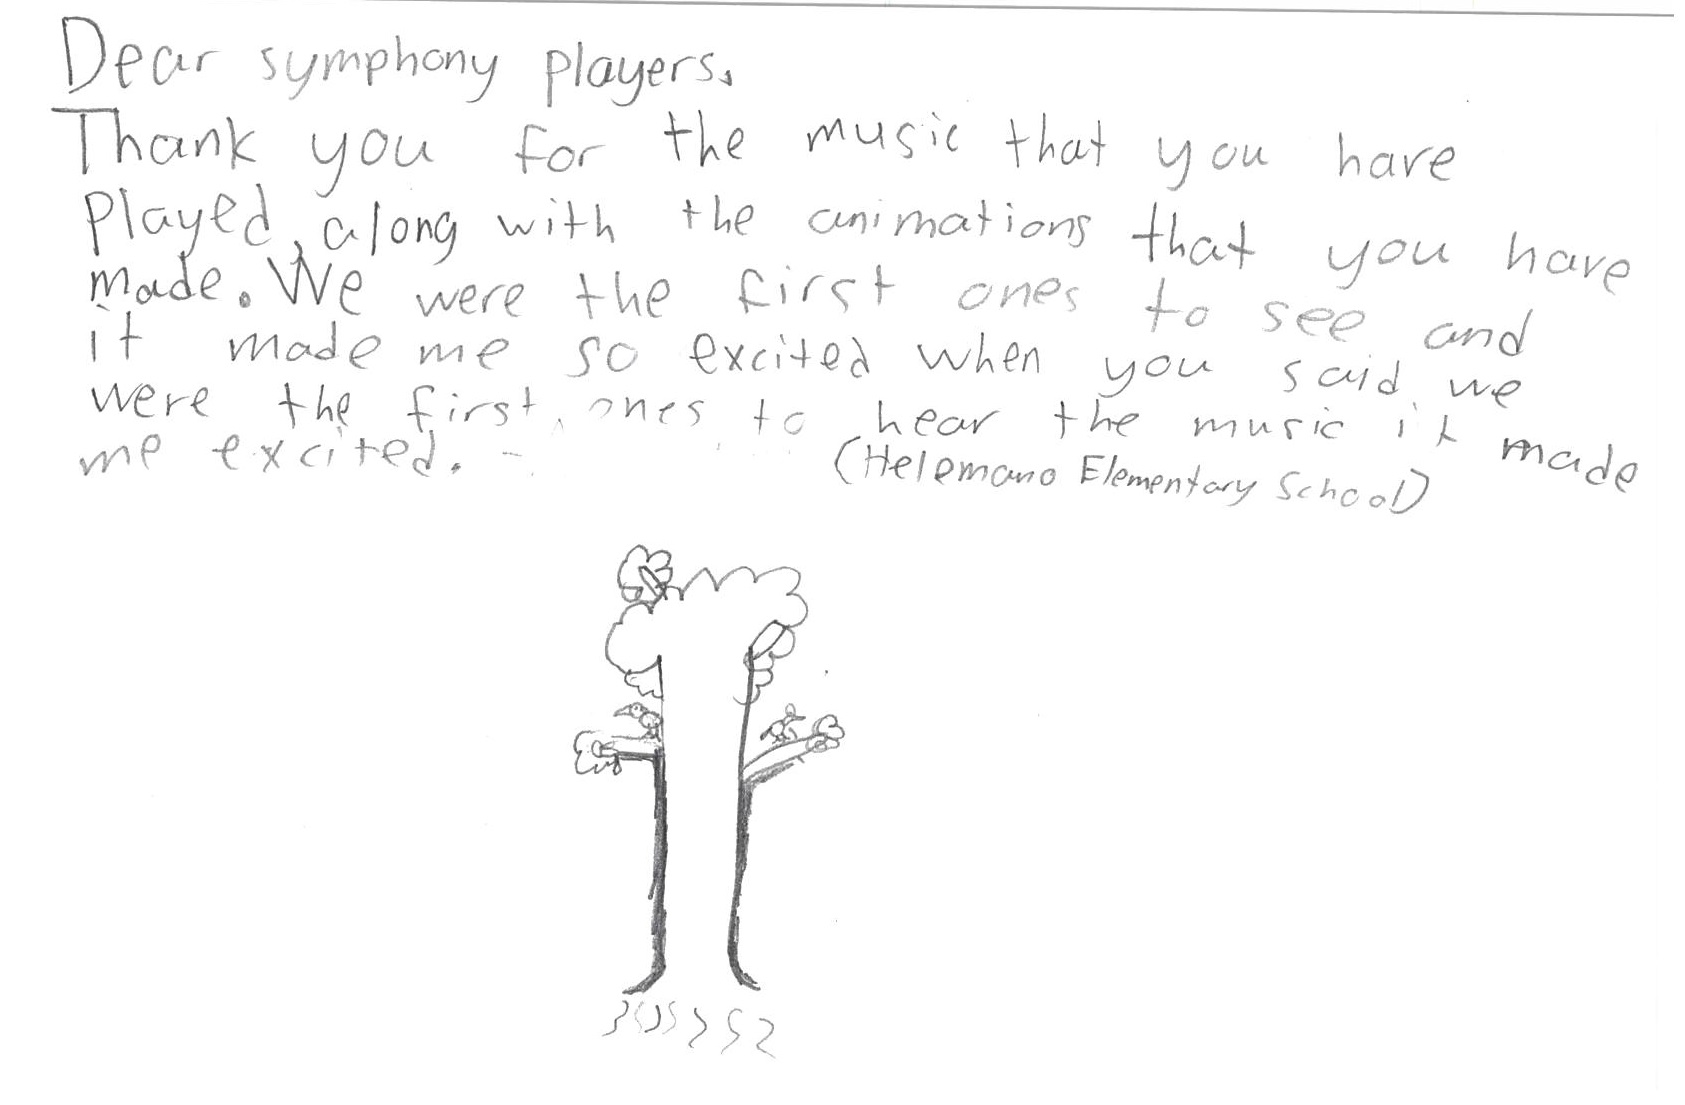 Dear symphony players,
Thank you for the music that you have
Played, along with the animations that you have
made. We were the first ones to see and
it made me so excited when you said we
were the first ones to hear the music it made
me excited.
(Helemano Elementary School)